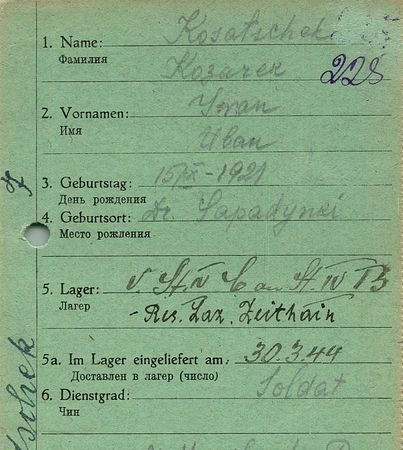 1. Name: Kosatschek
Фамилия
Козачек
228
2. Vornamen: Iwan
Имя
Иван
3. Geburtstag: 15/IX-1921
День рождения
4. Geburtsort: Dr. Sapadynzi
Место рождения
5. Lager: v. St. IV C an St. IV B
Лагер
-Res. Laz. Zeithain
5a. Im Lager eingeliefert am: 30.3.44
Доставлен в лагер (число)
6. Dienstgrad: Soldat
Чин